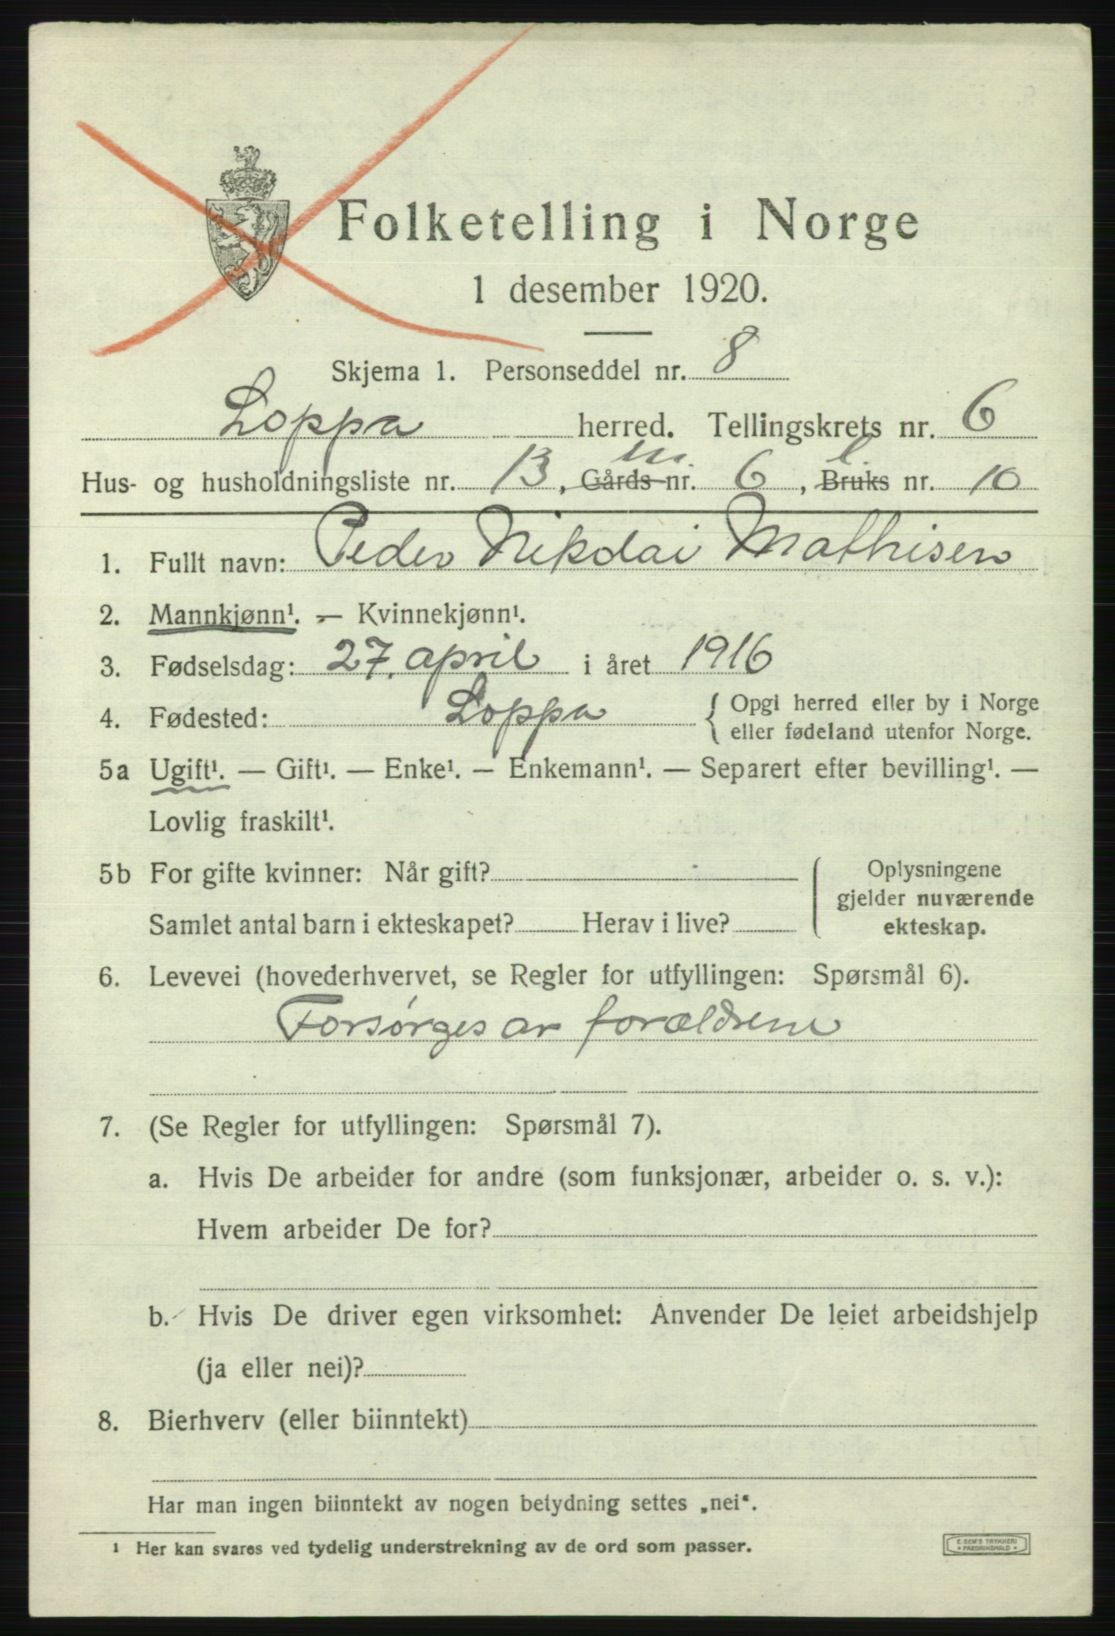 Folketelling i Norge
1 desember 1920.
Skjema 1. Personseddel nr. 8
Loppa herred. Tellingskrets nr. 6
Hus- og husholdningsliste nr. 13, Gårds nr. m. 6, Bruks l nr. 10
1. Fullt navn: Peder Nikolai Mathisen
2. Mannkjønn¹. — Kvinnekjønn¹.
3. Fødselsdag: 27. april i året 1916
4. Fødested: Loppa { Opgi herred eller by i Norge
eller fødeland utenfor Norge.
5a Ugift¹. — Gift¹. — Enke¹. — Enkemann¹. — Separert efter bevilling¹. —
Lovlig fraskilt¹.
5b For gifte kvinner: Når gift?
Samlet antal barn i ekteskapet? Herav i live?
Oplysningene
gjelder nuværende
ekteskap.
6. Levevei (hovederhvervet, se Regler for utfyllingen: Spørsmål 6).
Forsørges av forældrene
7. (Se Regler for utfyllingen: Spørsmål 7).
a. Hvis De arbeider for andre (som funksjonær, arbeider o. s. v.):
Hvem arbeider De for?
b. Hvis De driver egen virksomhet: Anvender De leiet arbeidshjelp
(ja eller nei)?
8. Bierhverv (eller biinntekt)
Har man ingen biinntekt av nogen betydning settes „nei“.
¹ Her kan svares ved tydelig understrekning av de ord som passer.
E. SEM'S TRYKKERI
• FREDRIKSHALD •